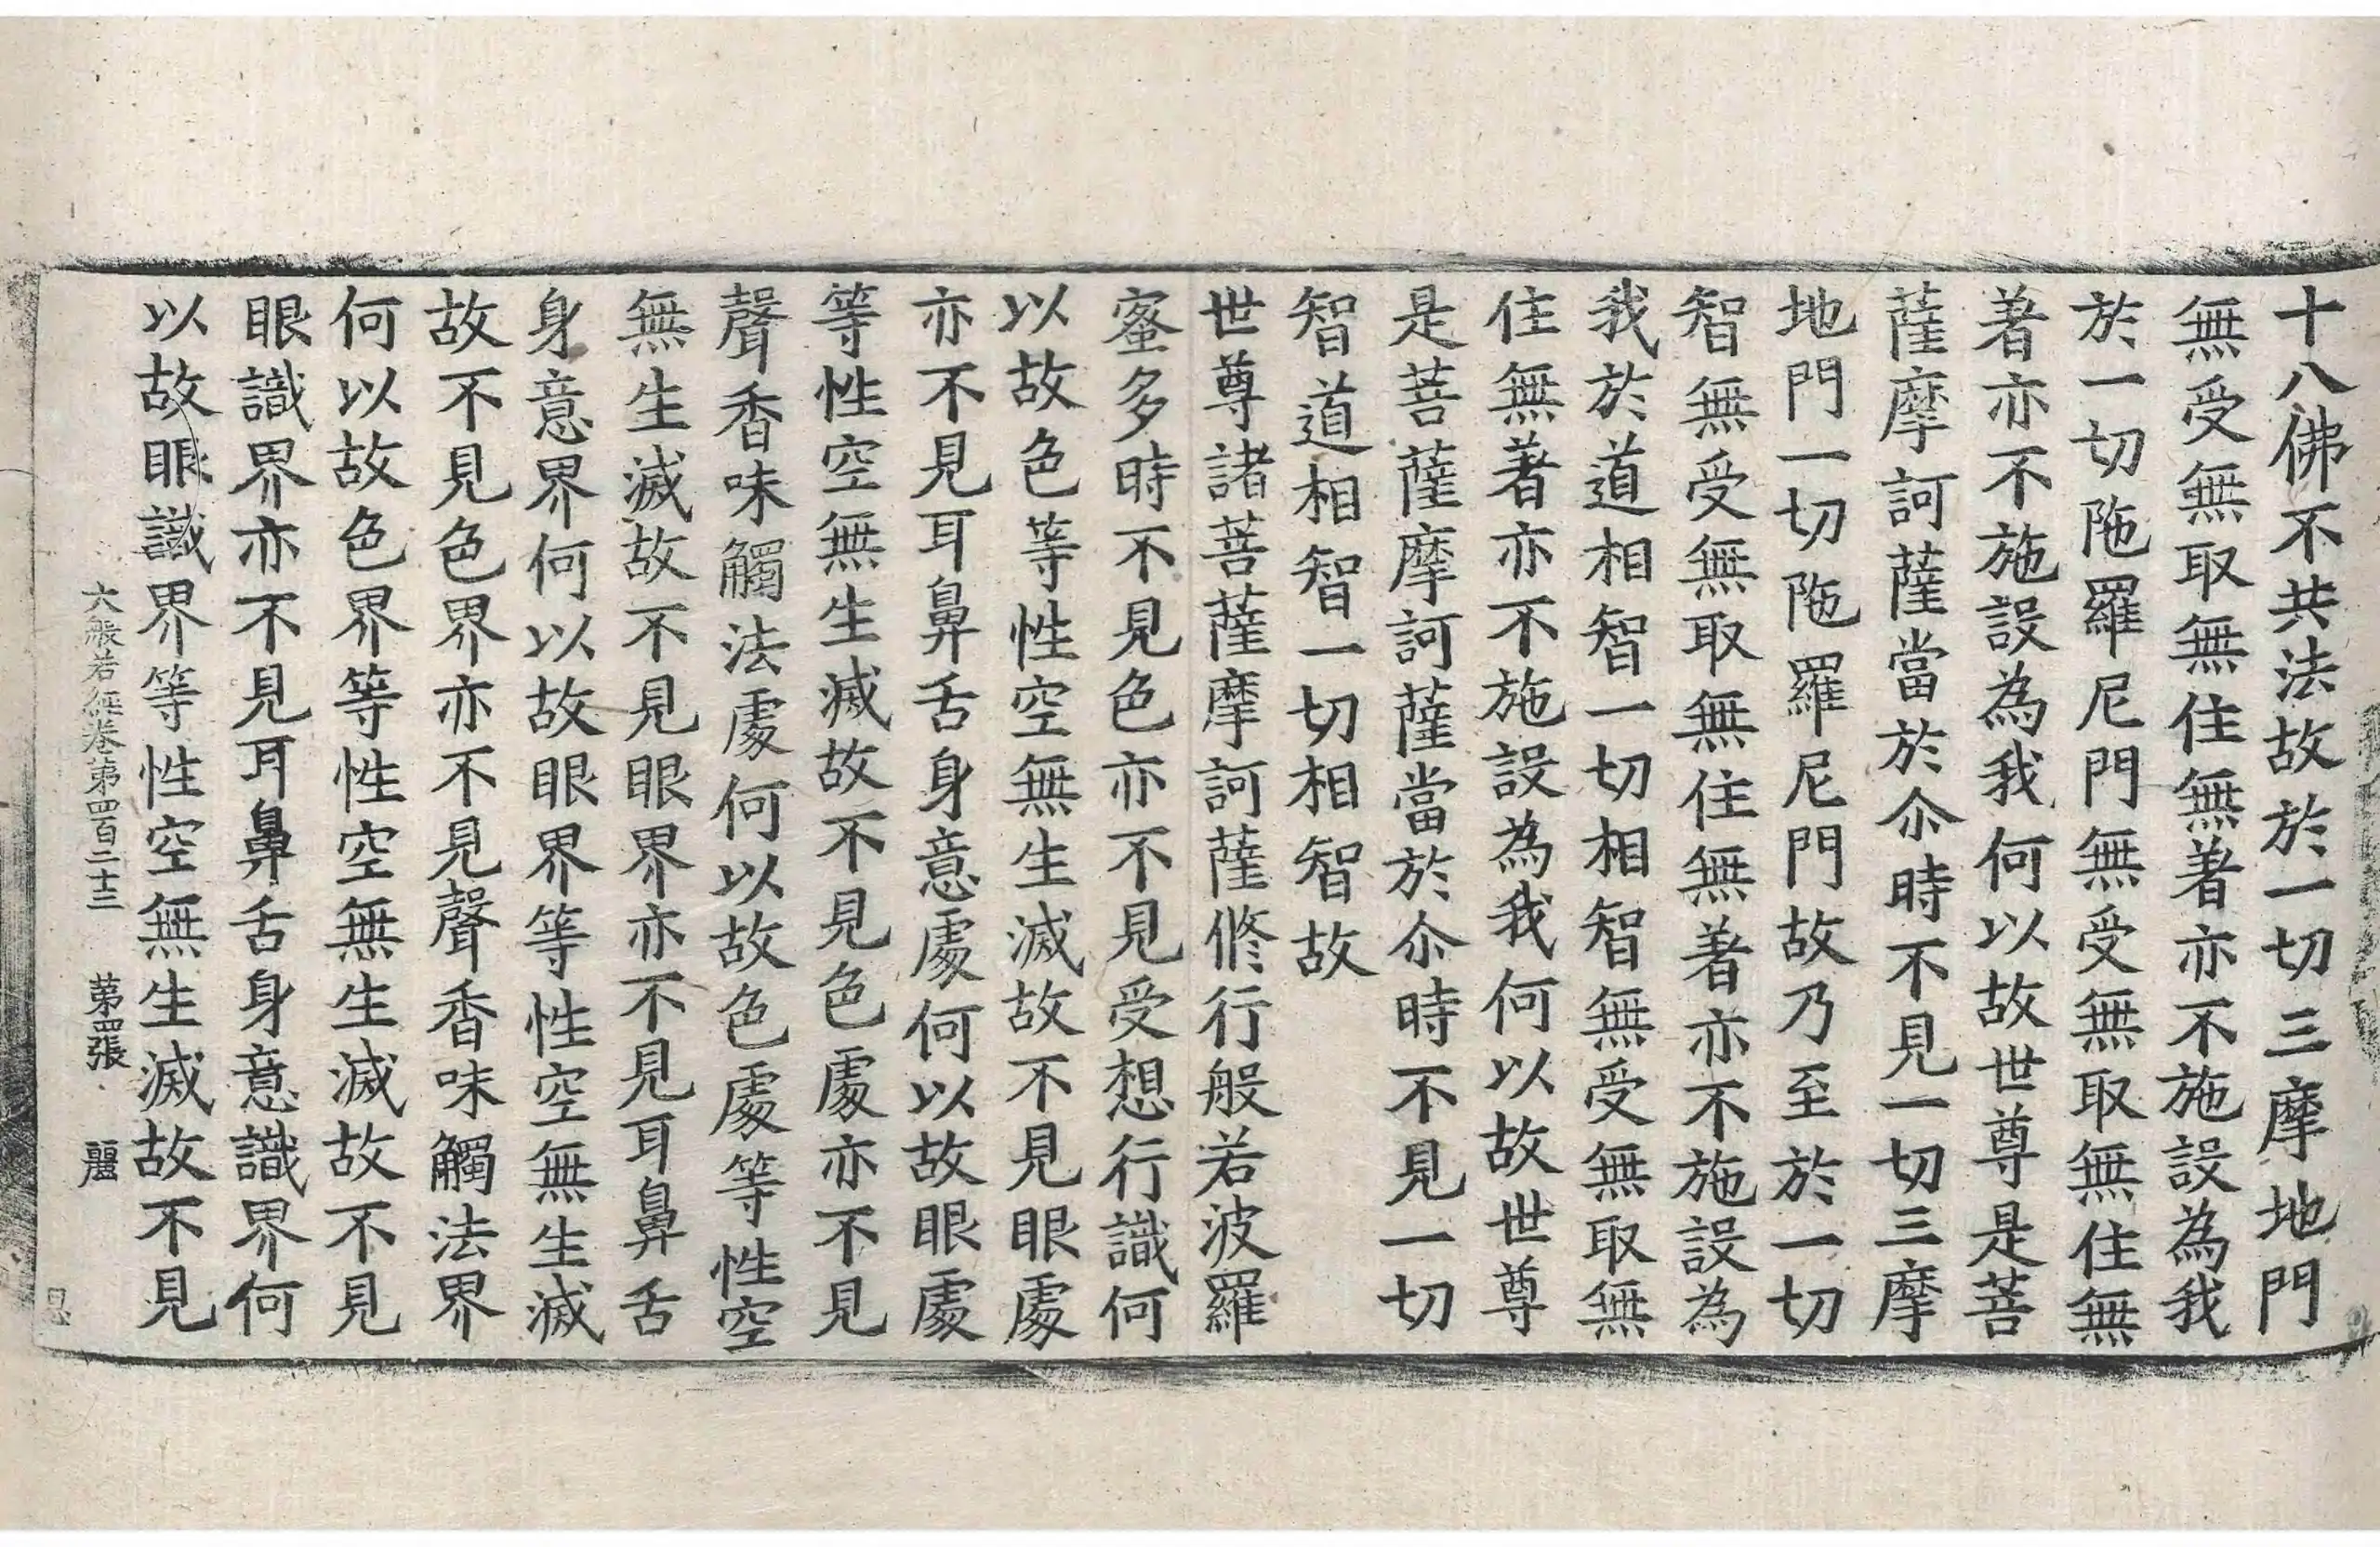 十八佛不共法故於一切三摩地門
無受無取無住無著亦不施設為我
於一切陁羅尼門無受無取無住無
著亦不施設為我何以故世尊是菩
薩摩訶薩當於尒時不見一切三摩
地門一切陁羅尼門故乃至於一切
智無受無取無住無著亦不施設為
我於道相智一切相智無受無取無
住無著亦不施設為我何以故世尊
是菩薩摩訶薩當於尒時不見一切
智道相智一切相智故
世尊諸菩薩摩訶薩脩行般若波羅
蜜多時不見色亦不見受想行識何
以故色等性空無生滅故不見眼處
亦不見耳鼻舌身意處何以故眼處
等性空無生滅故不見色處亦不見
聲香味觸法處何以故色處等性空
無生滅故不見眼界亦不見耳鼻舌
身意界何以故眼界等性空無生滅
故不見色界亦不見聲香味觸法界
何以故色界等性空無生滅故不見
眼識界亦不見耳鼻舌身意識界何
以故眼識界等性空無生滅故不見
大般若經卷第四百二十三 第四張